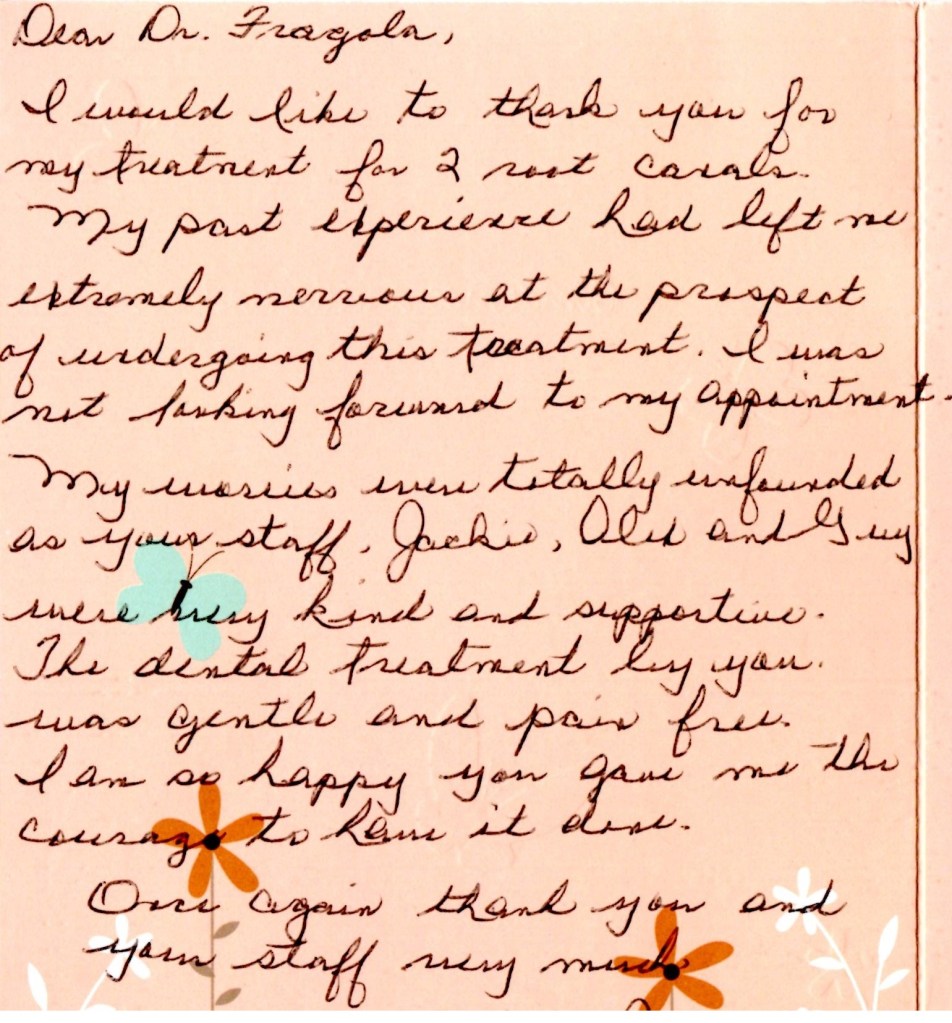 Dear Dr. Fragola,
I would like to thank you for
my treatment for 2 root canals.
My past experience had left me
extremely nervous at the prospect
of undergoing this treatment. I was
not looking forward to my appointment.
My worries were totally unfounded
as your staff, Jackie, Alex and Guy
were very kind and supportive.
The dental treatment by you.
was gentle and pain free.
I am so happy you gave me the
courage to have it done.
Once again thank you and
your staff very much